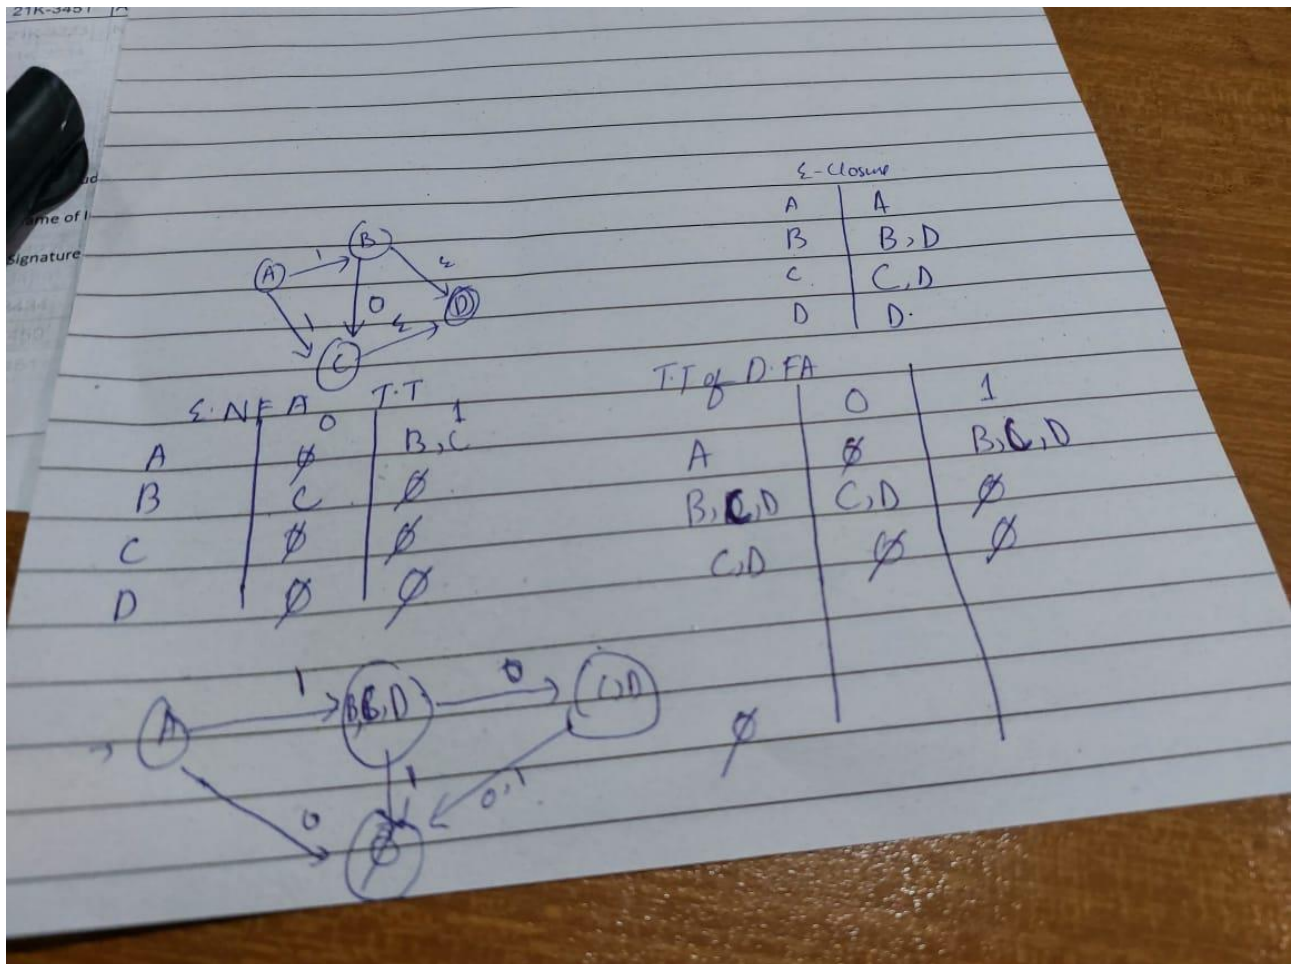 21K-3451
ud
ame of I
signature
ε-Closure
A A
B B,D
C C,D
D D.
A 1 B ε D
1 0 ε
C
ε.NFA T.T
0 1
A ∅ B,C
B C ∅
C ∅ ∅
D ∅ ∅
T.T of D.FA
0 1
A ∅ B,C,D
B,C,D C,D ∅
C,D ∅ ∅
∅
A 1 B,C,D 0 C,D
0 1 0,1
∅